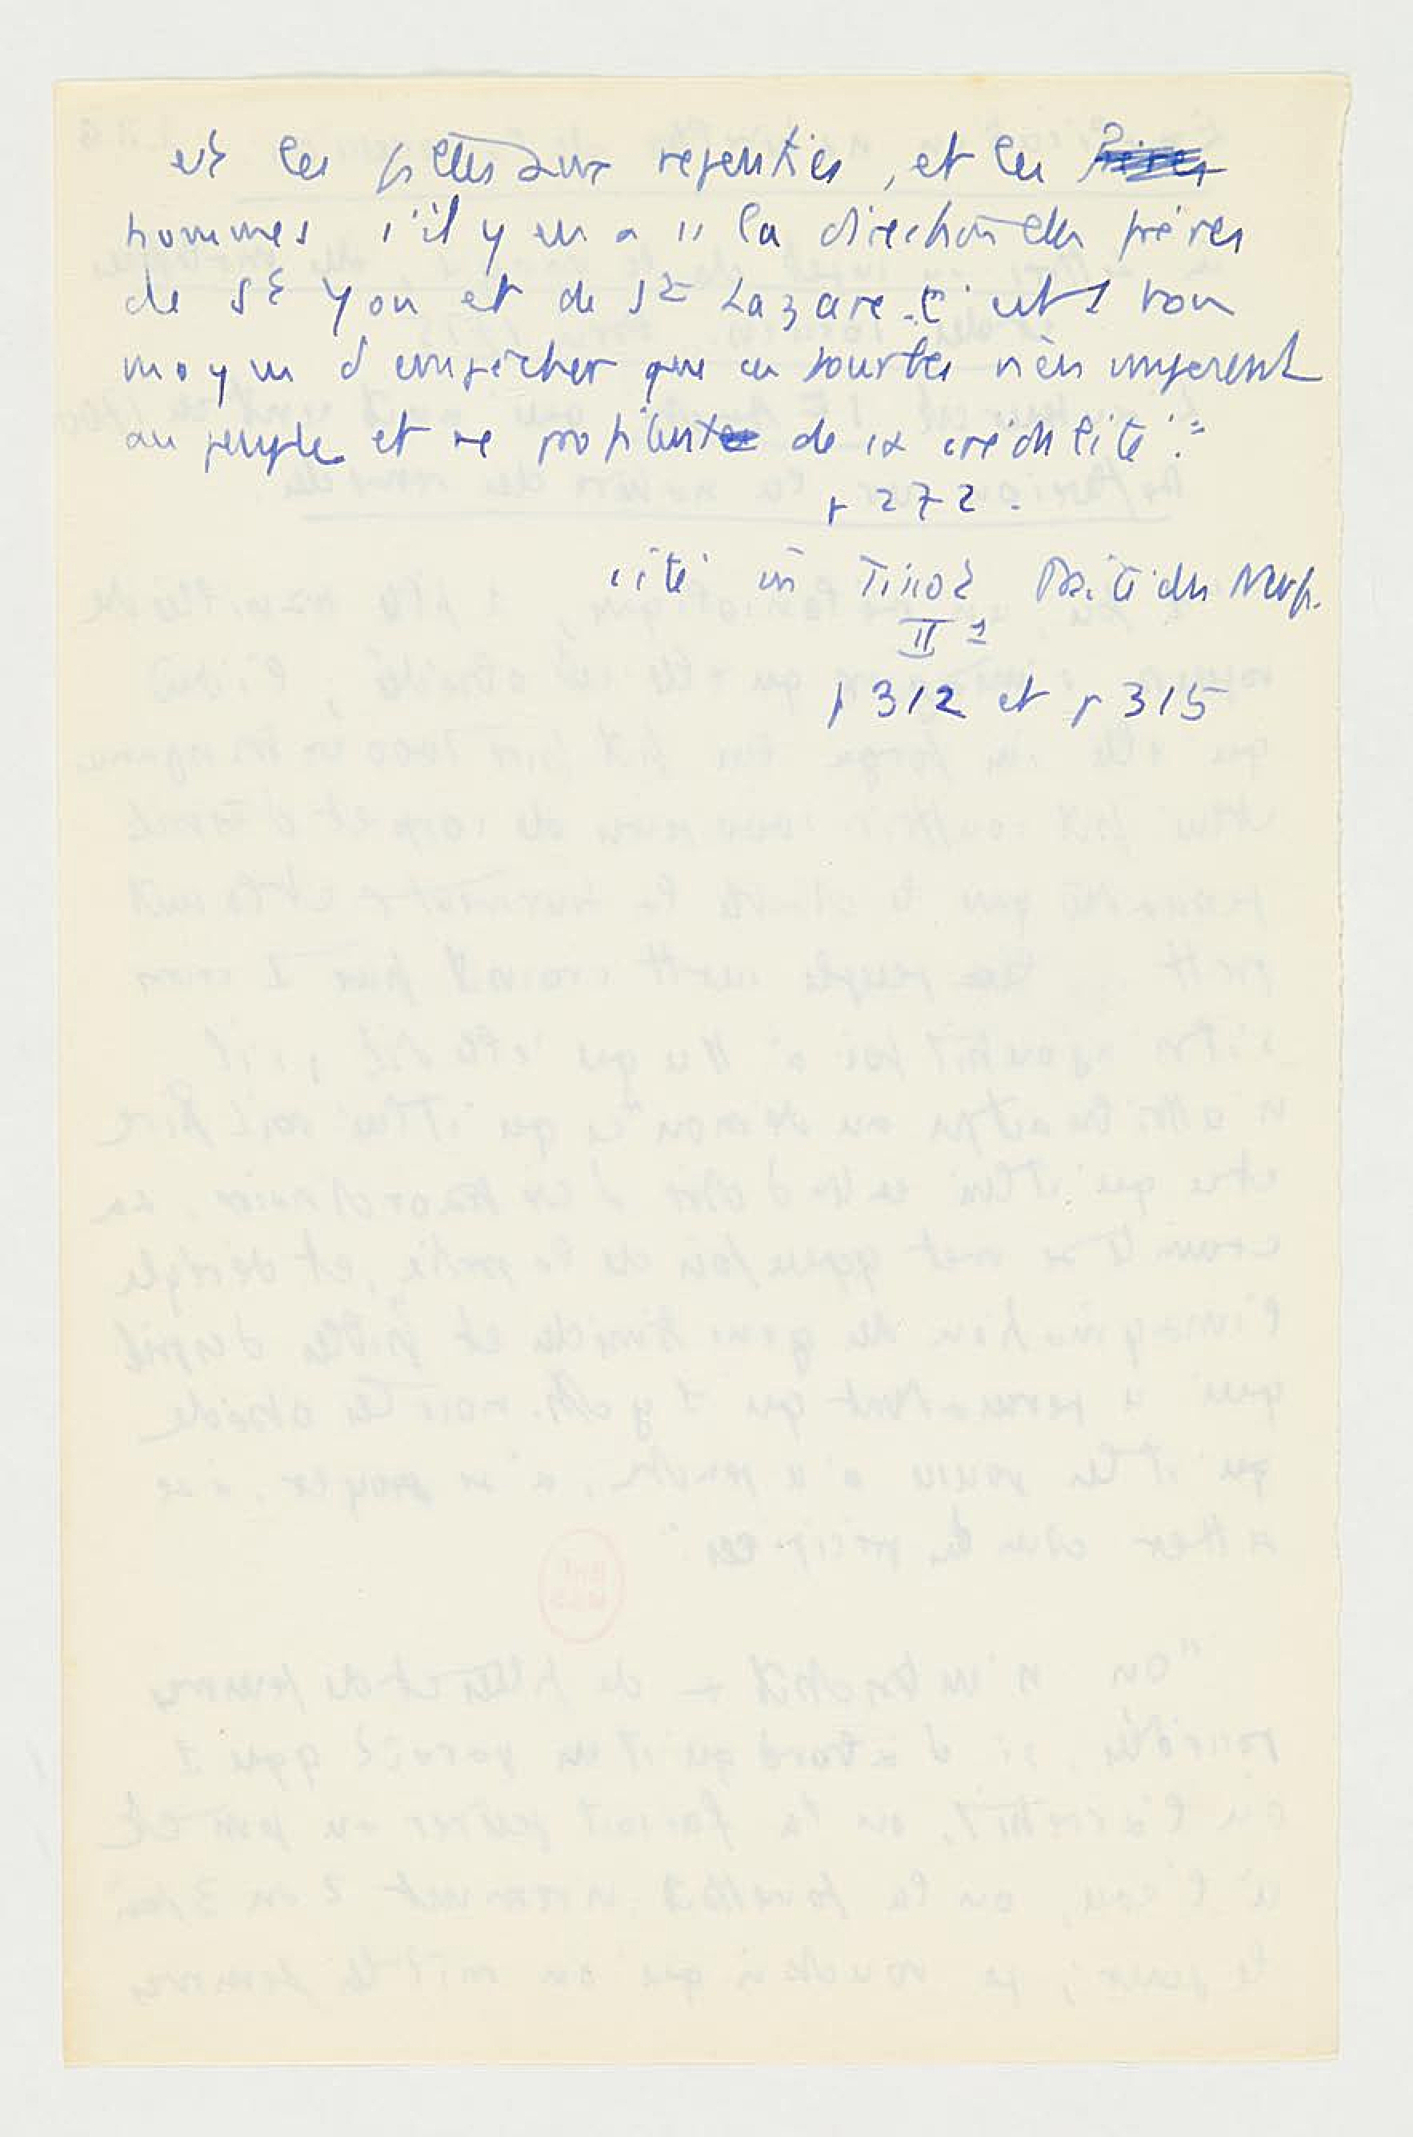 et les filles aux repenties, et les
hommes s'il y en a ss la direction des frères
de St Yon et de St Lazare. C'est 1 bon
moyen d'empêcher que ces fourbes n'en imposent
au peuple et ne profitent de sa crédulité".
p 272.
cité in Tissot Traité des Nerfs.
II 1
p 312 et p 315